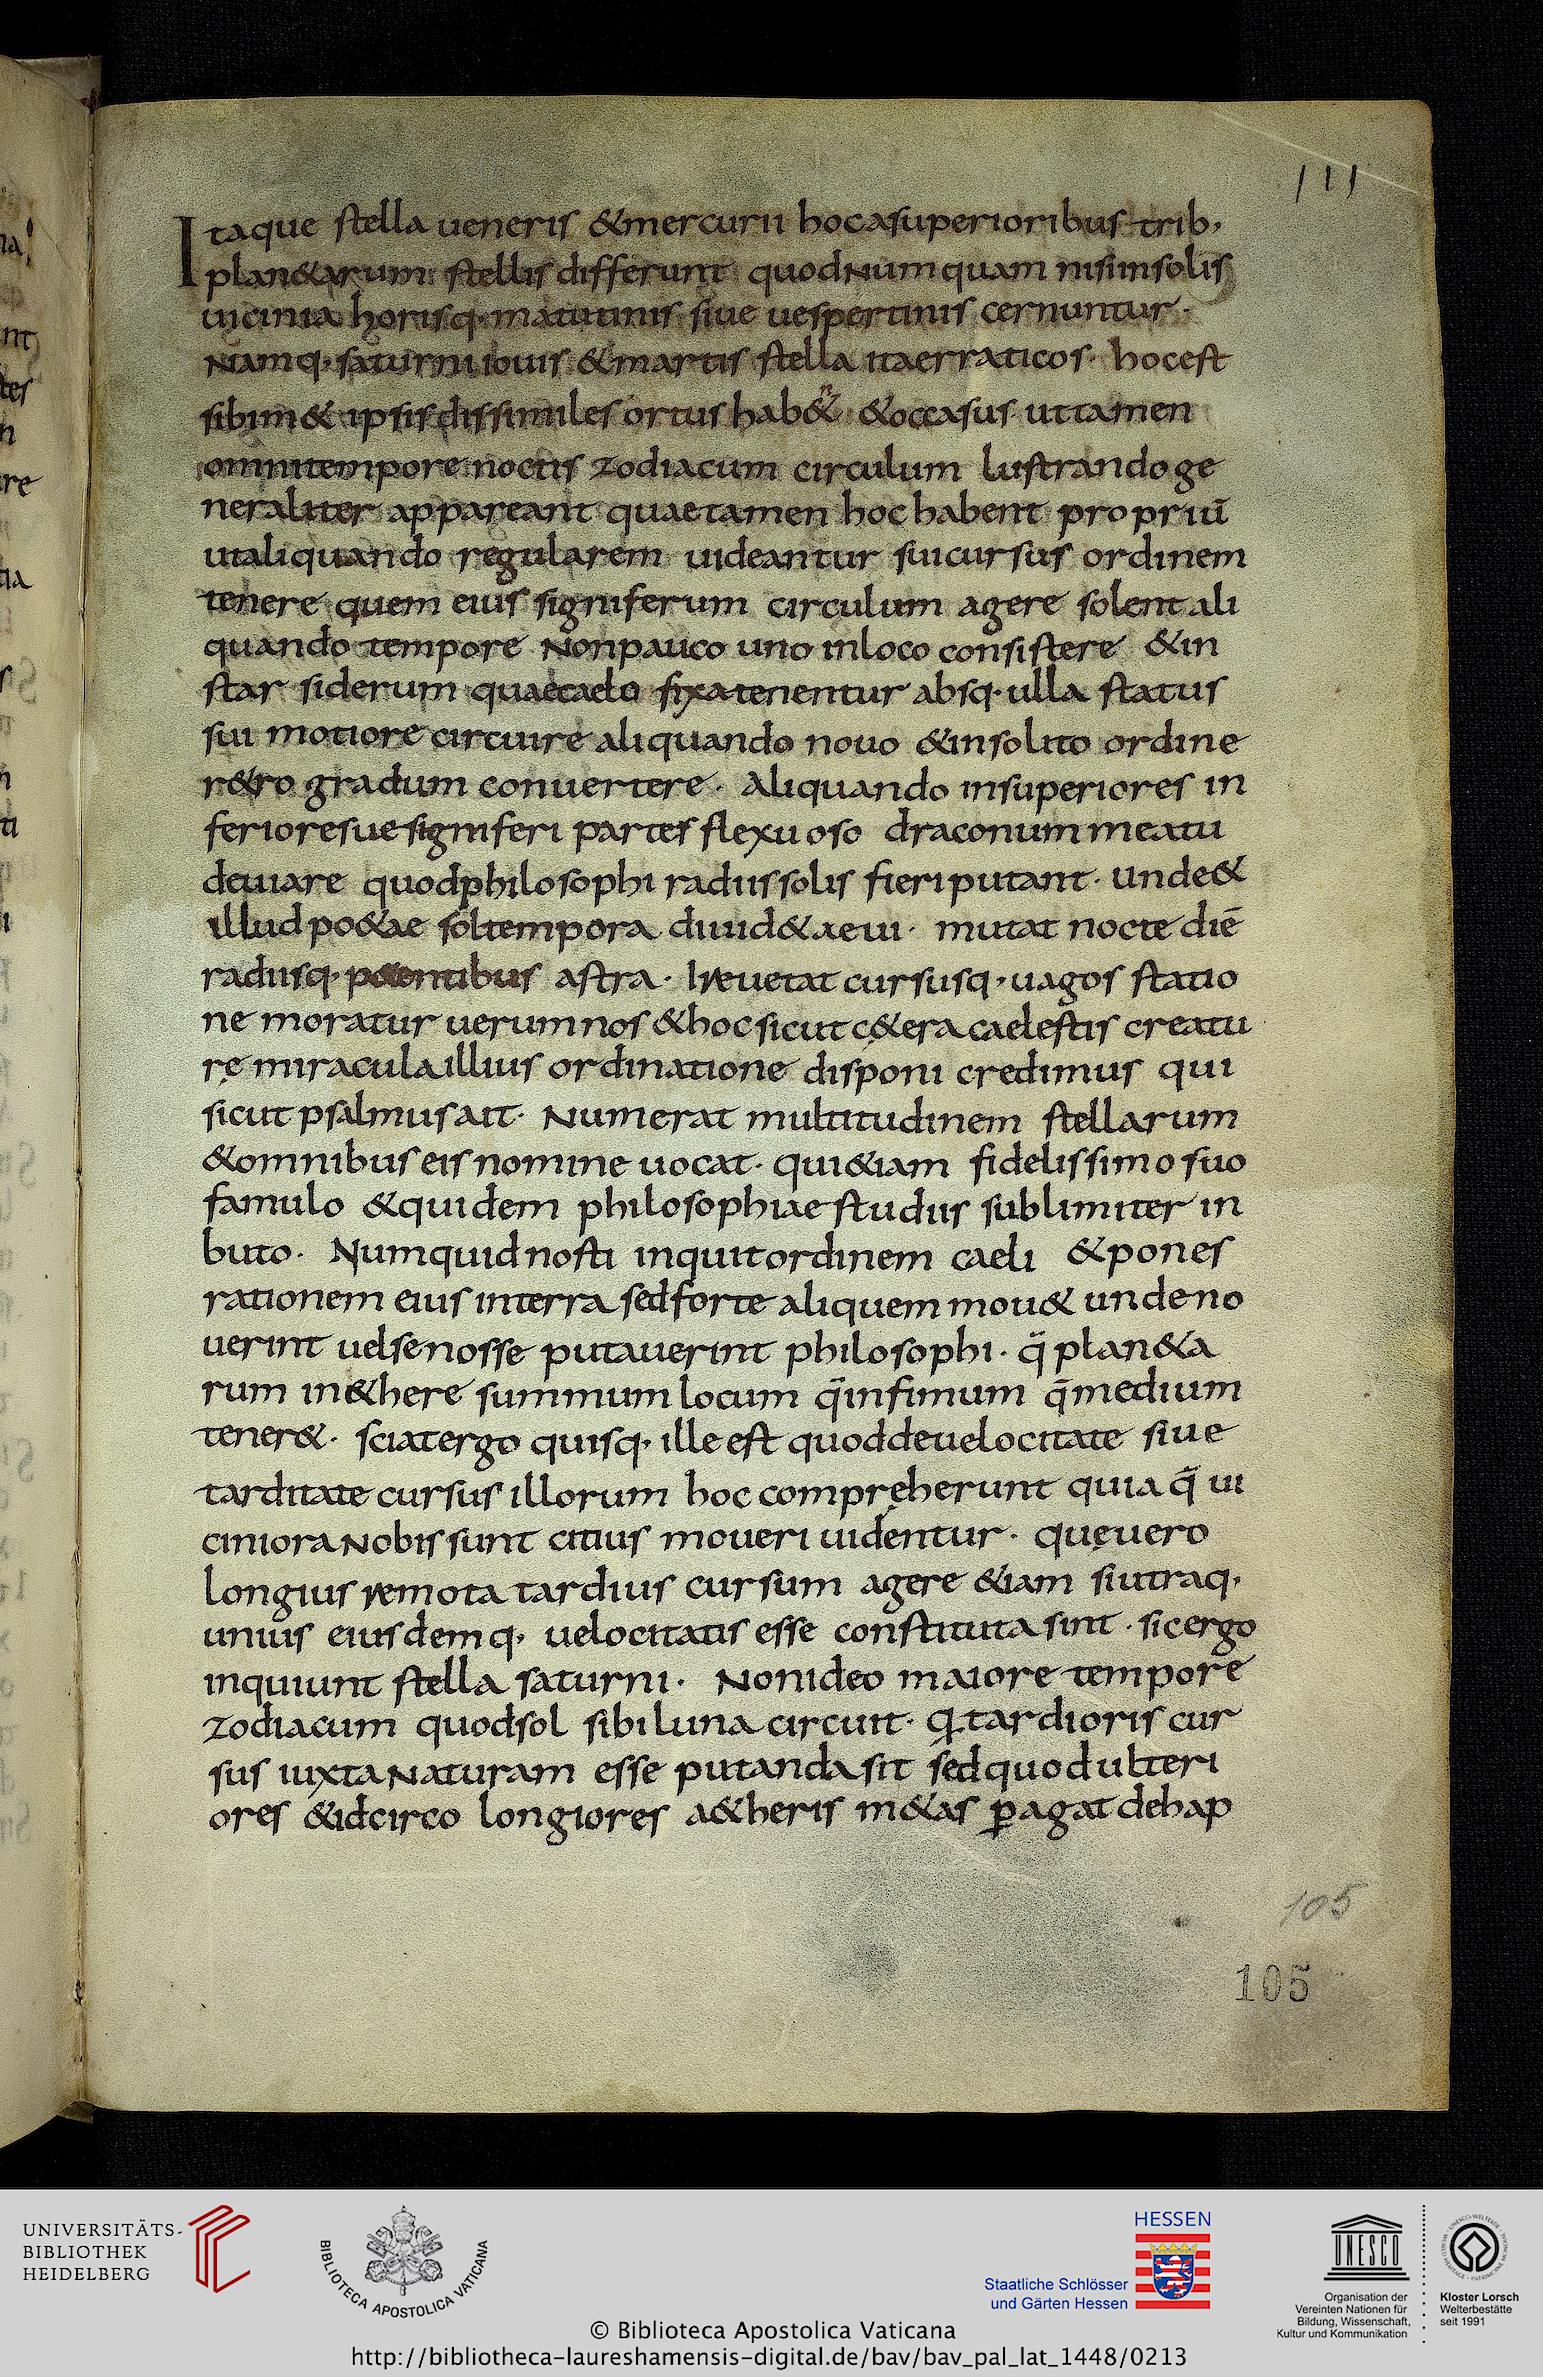 111
Itaque stella ueneris &mercurii hocasuperioribus trib;
plan&arum stellis differunt quodNumquam nisiinsolis
uicinia horisq; matutinis siue uespertinis cernuntur·
Namq; saturni iouis &martis stella itaerraticos· hocest
sibim& ipsis dissimiles ortus hab& &occasus uttamen
omnitempore noctis zodiacum circulum lustrandoge
neraliter appareant quaetamen hoc habent propriū
utaliquando regularem uideantur suicursus ordinem
tenere quem eius signiferum circulum agere solent ali
quando tempore Nonpauco uno inloco consistere &in
star siderum quaecaelo fixatenentur absq; ulla status
sui motiore circuire aliquando nouo &insolito ordine
r&ro gradum conuertere· Aliquando insuperiores in
ferioresuesigniferi partes flexuoso draconum meatu
deuiare quodphilosophi radiissolis fieriputant· unde&
illud po&ae sol tempora diuid&aeui· mutat nocte diē
radiisq; potentibus astra· ireuetat cursusq; uagos statio
ne moratur uerumnos &hocsicut c&era caelestis creatu
rę miraculaillius ordinatione disponi credimus qui
sicut psalmusait· Numerat multitudinem stellarum
&omnibus eis nomine uocat· qui&iam fidelissimo suo
famulo &quidem philosophiae studiis sublimiter in
buto· Numquidnosti inquitordinem caeli &pones
rationem eius interra sedforte aliquem mou& undeno
uerint uelsenosse putauerint philosophi· q̄ plan&a
rum in&here summum locum q̄infimum q̄medium
tener&· sciatergo quisq; ille est quoddeuelocitate siue
tarditate cursus illorum hoc compręherunt quia q̄ ui
ciniora Nobis sunt citius moueri uidentur· quęuero
longius remota tardius cursum agere &iam siutraq;
unius eiusdemq; uelocitatis esse constituta sint· sicergo
inquiunt stella saturni· Nonideo maiore tempore
zodiacum quodsol sibiluna circuit· q tardioris cur
sus iuxtaNaturam esse putandasit sedquodulteri
ores &idcirco longiores a&heris m&as ꝑagat dehap
105
105
UNIVERSITÄTS-
BIBLIOTHEK
HEIDELBERG
BIBLIOTECA APOSTOLICA VATICANA
HESSEN
Staatliche Schlösser
und Gärten Hessen
UNESCO
Organisation der
Vereinten Nationen für
Bildung, Wissenschaft,
Kultur und Kommunikation
Kloster Lorsch
Welterbestätte
seit 1991
© Biblioteca Apostolica Vaticana
http://bibliotheca-laureshamensis-digital.de/bav/bav_pal_lat_1448/0213